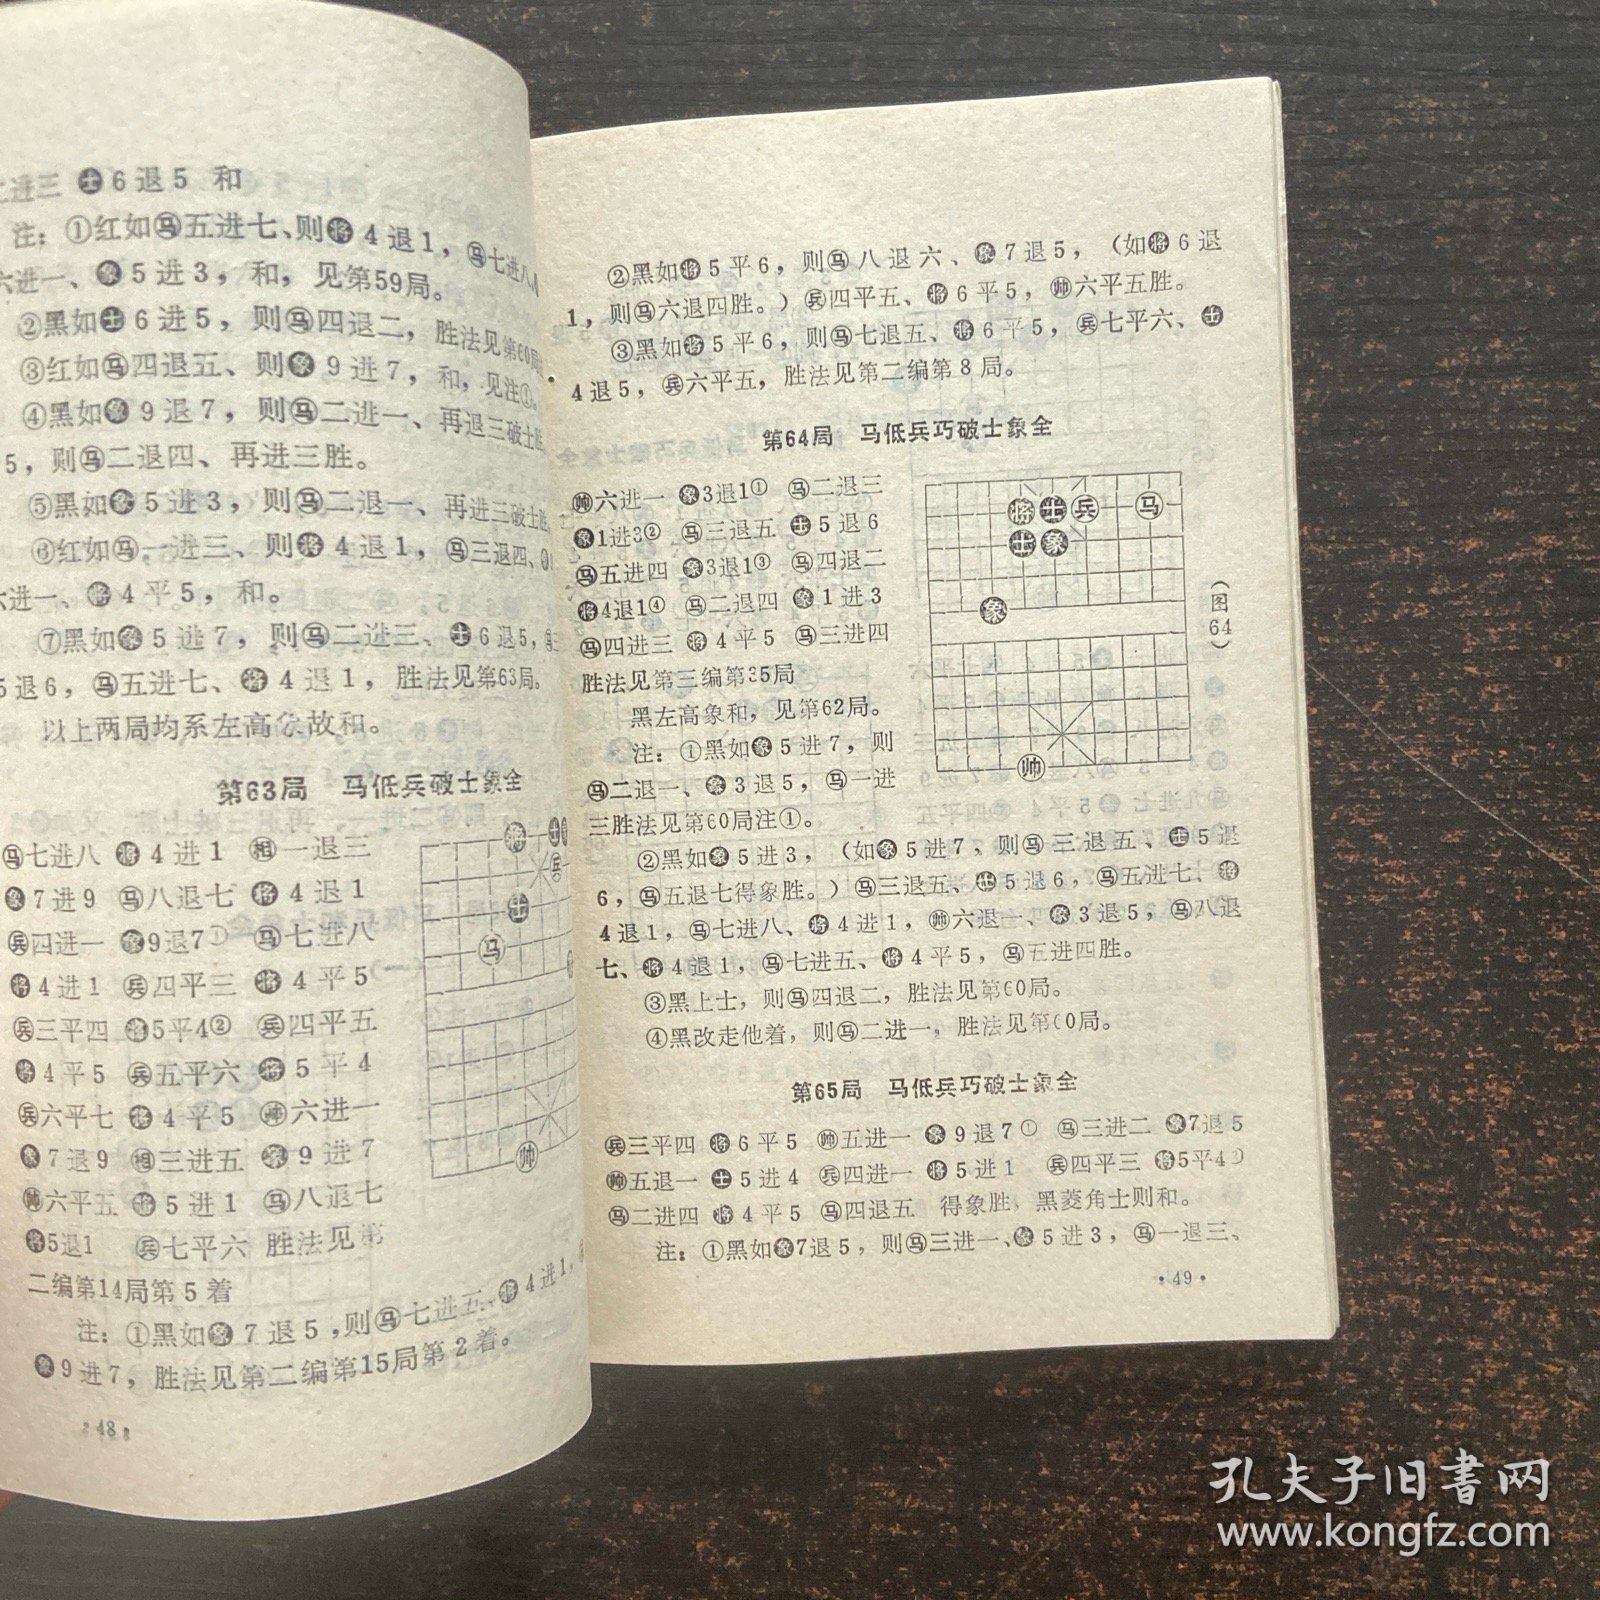 士6退5 和
注：①红如马五进七、则将4退1，马七进八
六进一、象5进3，和，见第59局。
②黑如士6进5，则马四退二，胜法见第60局
③红如马四退五、则象9进7，和，见注①。
④黑如象9退7，则马二进一、再退三破士胜
5，则马二退四、再进三胜。
⑤黑如象5进3，则马二退一、再进三破士胜
⑥红如马一进三、则将4退1，马三退四、
六进一、将4平5，和。
⑦黑如象5进7，则马二进三、士6退5，
5退6，马五进七、将4退1，胜法见第63局。
以上两局均系左高象故和。
第63局 马低兵破士象全
马七进八 将4进1 相一退三
象7进9 马八退七 将4退1
兵四进一 象9退7① 马七进八
将4进1 兵四平三 将4平5
兵三平四 将5平4② 兵四平五
将4平5 兵五平六 将5平4
兵六平七 将4平5 帅六进一
象7退9 相三进五 象9进7
帅六平五 将5进1 马八退七
将5退1 兵七平六 胜法见第
二编第14局第5着
注：①黑如象7退5，则马七进五、将4进1，
象9进7，胜法见第二编第15局第2着。
48
将 士 兵 士 马 帅
②黑如将5平6，则马八退六、象7退5，（如将6退
1，则马六退四胜。）兵四平五、将6平5，帅六平五胜。
③黑如将5平6，则马七退五、将6平5，兵七平六、士
4退5，兵六平五，胜法见第二编第8局。
第64局 马低兵巧破士象全
帅六进一 象3退1① 马二退三
象1进3② 马三退五 士5退6
马五进四 象3退1③ 马四退二
将4退1④ 马二退四 象1进3
马四进三 将4平5 马三进四
胜法见第三编第35局
黑左高象和，见第62局。
注：①黑如象5进7，则
马二退一、象3退5，马一进
三胜法见第60局注①。
将 士 兵 马
士 象
象
帅
（图64）
②黑如象5进3，（如象5进7，则马三退五、士5退
6，马五退七得象胜。）马三退五、士5退6，马五进七、将
4退1，马七进八、将4进1，帅六退一、象3退5，马八退
七、将4退1，马七进五、将4平5，马五进四胜。
③黑上士，则马四退二，胜法见第60局。
④黑改走他着，则马二进一，胜法见第60局。
第65局 马低兵巧破士象全
兵三平四 将6平5 帅五进一 象9退7① 马三进二 象7退5
帅五退一 士5进4 兵四进一 将5进1 兵四平三 将5平4
马二进四 将4平5 马四退五 得象胜，黑菱角士则和。
注：①黑如象7退5，则马三进一、象5进3，马一退三、
·49·
孔夫子旧书网
www.kongfz.com